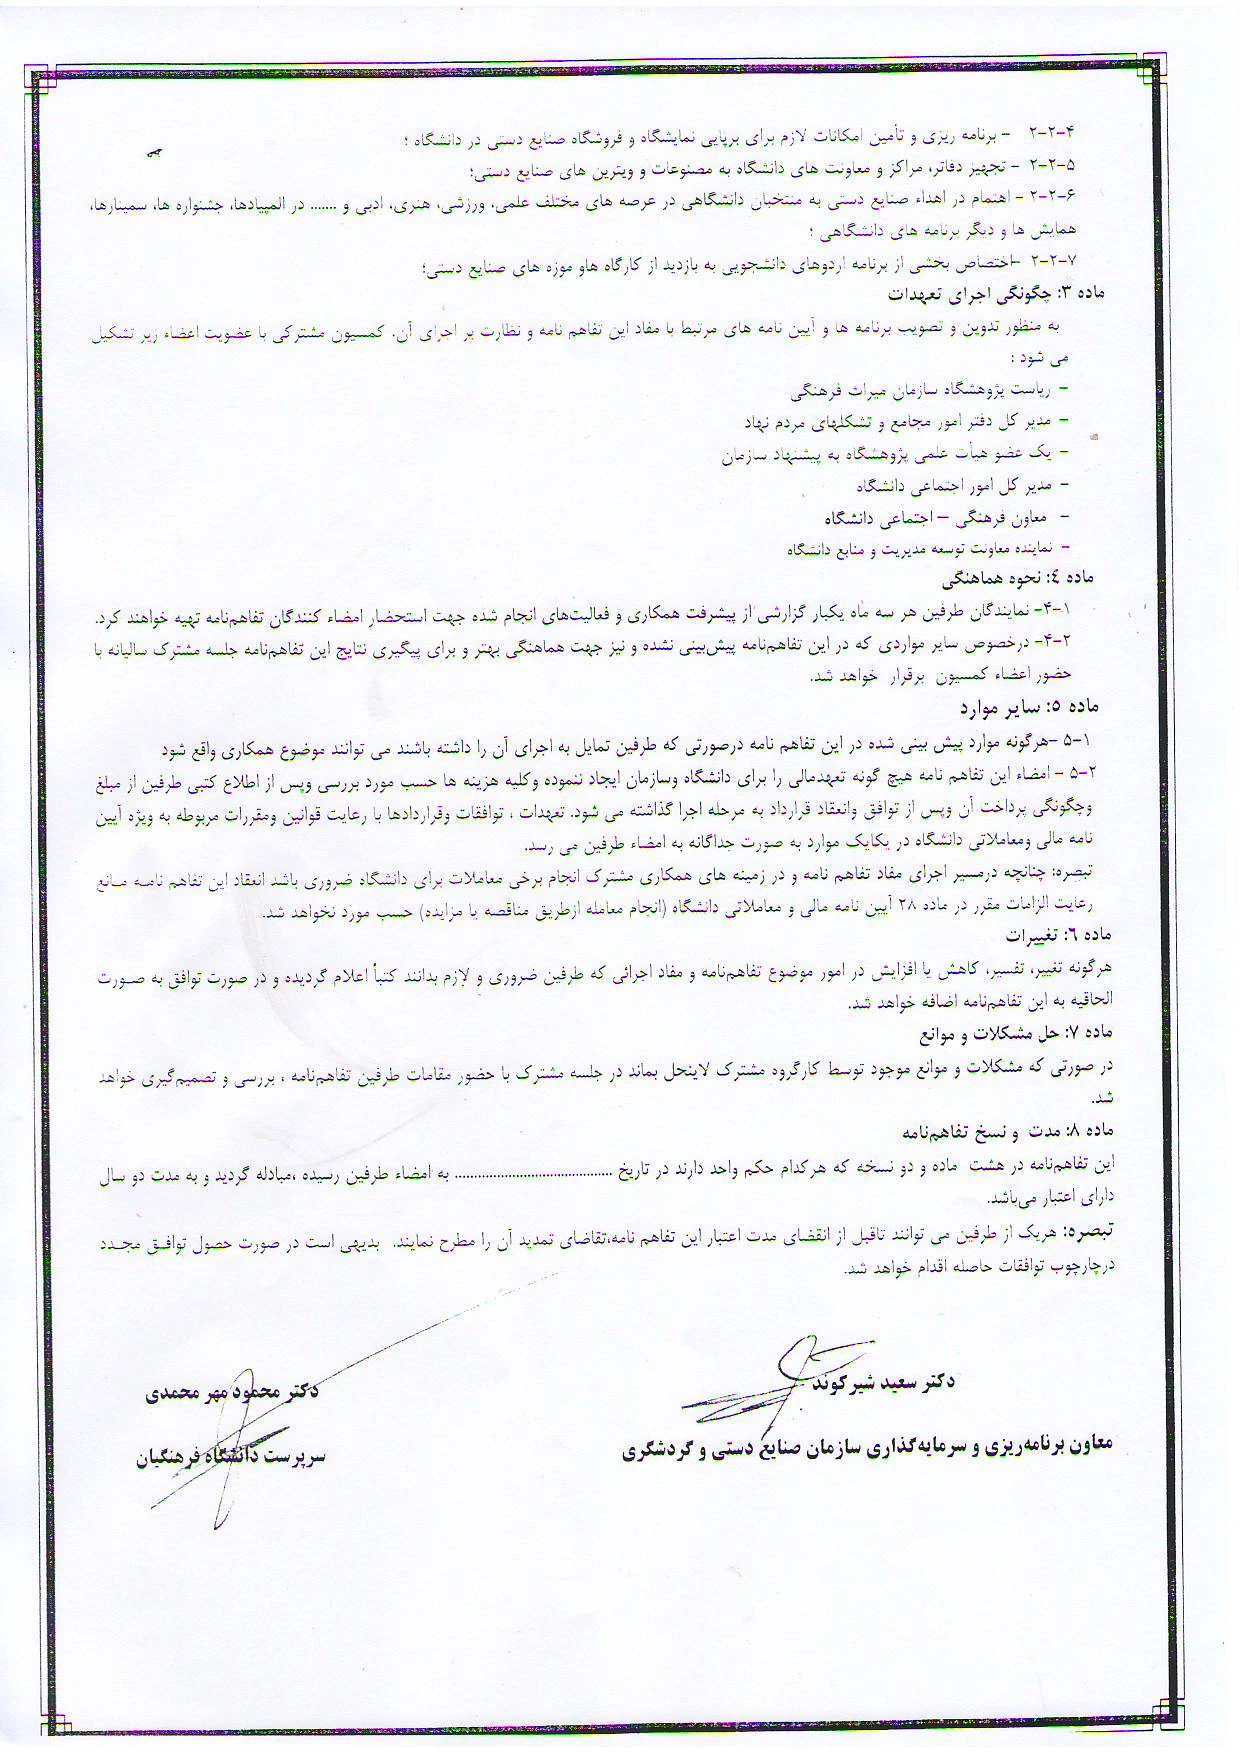 ۲-۲-۴ - برنامه ریزی و تأمین امکانات لازم برای برپایی نمایشگاه و فروشگاه صنایع دستی در دانشگاه ؛
۲-۲-۵ - تجهیز دفاتر، مراکز و معاونت های دانشگاه به مصنوعات و ویترین های صنایع دستی؛
۲-۲-۶ - اهتمام در اهداء صنایع دستی به منتخبان دانشگاهی در عرصه های مختلف علمی، ورزشی، هنری، ادبی و ....... در المپیادها، جشنواره ها، سمینارها،
همایش ها و دیگر برنامه های دانشگاهی ؛
۲-۲-۷ -اختصاص بخشی از برنامه اردوهای دانشجویی به بازدید از کارگاه هاو موزه های صنایع دستی؛
ماده ۳: چگونگی اجرای تعهدات
به منظور تدوین و تصویب برنامه ها و آیین نامه های مرتبط با مفاد این تفاهم نامه و نظارت بر اجرای آن، کمسیون مشترکی با عضویت اعضاء زیر تشکیل
می شود :
- ریاست پژوهشگاه سازمان میراث فرهنگی
- مدیر کل دفتر امور مجامع و تشکلهای مردم نهاد
- یک عضو هیأت علمی پژوهشگاه به پیشنهاد سازمان
- مدیر کل امور اجتماعی دانشگاه
- معاون فرهنگی – اجتماعی دانشگاه
- نماینده معاونت توسعه مدیریت و منابع دانشگاه
ماده ۴: نحوه هماهنگی
۴-۱- نمایندگان طرفین هر سه ماه یکبار گزارشی از پیشرفت همکاری و فعالیت‌های انجام شده جهت استحضار امضاء کنندگان تفاهم‌نامه تهیه خواهند کرد.
۴-۲- درخصوص سایر مواردی که در این تفاهم‌نامه پیش‌بینی نشده و نیز جهت هماهنگی بهتر و برای پیگیری نتایج این تفاهم‌نامه جلسه مشترک سالیانه با
حضور اعضاء کمسیون برقرار خواهد شد.
ماده ۵: سایر موارد
۵-۱ -هرگونه موارد پیش بینی شده در این تفاهم نامه درصورتی که طرفین تمایل به اجرای آن را داشته باشند می توانند موضوع همکاری واقع شود
۵-۲ - امضاء این تفاهم نامه هیچ گونه تعهدمالی را برای دانشگاه وسازمان ایجاد ننموده وکلیه هزینه ها حسب مورد بررسی وپس از اطلاع کتبی طرفین از مبلغ
وچگونگی پرداخت آن وپس از توافق وانعقاد قرارداد به مرحله اجرا گذاشته می شود. تعهدات ، توافقات وقراردادها با رعایت قوانین ومقررات مربوطه به ویژه آیین
نامه مالی ومعاملاتی دانشگاه در یکایک موارد به صورت جداگانه به امضاء طرفین می رسد.
تبصره: چنانچه درمسیر اجرای مفاد تفاهم نامه و در زمینه های همکاری مشترک انجام برخی معاملات برای دانشگاه ضروری باشد انعقاد این تفاهم نامه مانع
رعایت الزامات مقرر در ماده ۲۸ آیین نامه مالی و معاملاتی دانشگاه (انجام معامله ازطریق مناقصه یا مزایده) حسب مورد نخواهد شد.
ماده ۶: تغییرات
هرگونه تغییر، تفسیر، کاهش یا افزایش در امور موضوع تفاهم‌نامه و مفاد اجرائی که طرفین ضروری و لازم بدانند کتباً اعلام گردیده و در صورت توافق به صورت
الحاقیه به این تفاهم‌نامه اضافه خواهد شد.
ماده ۷: حل مشکلات و موانع
در صورتی که مشکلات و موانع موجود توسط کارگروه مشترک لاینحل بماند در جلسه مشترک با حضور مقامات طرفین تفاهم‌نامه ، بررسی و تصمیم‌گیری خواهد
شد.
ماده ۸: مدت و نسخ تفاهم‌نامه
این تفاهم‌نامه در هشت ماده و دو نسخه که هرکدام حکم واحد دارند در تاریخ ........................................ به امضاء طرفین رسیده ،مبادله گردید و به مدت دو سال
دارای اعتبار می‌باشد.
تبصره: هریک از طرفین می توانند تاقبل از انقضای مدت اعتبار این تفاهم نامه،تقاضای تمدید آن را مطرح نمایند. بدیهی است در صورت حصول توافق مجدد
درچارچوب توافقات حاصله اقدام خواهد شد.
دکتر سعید شیرکوند
معاون برنامه‌ریزی و سرمایه‌گذاری سازمان صنایع دستی و گردشگری
دکتر محمود مهر محمدی
سرپرست دانشگاه فرهنگیان